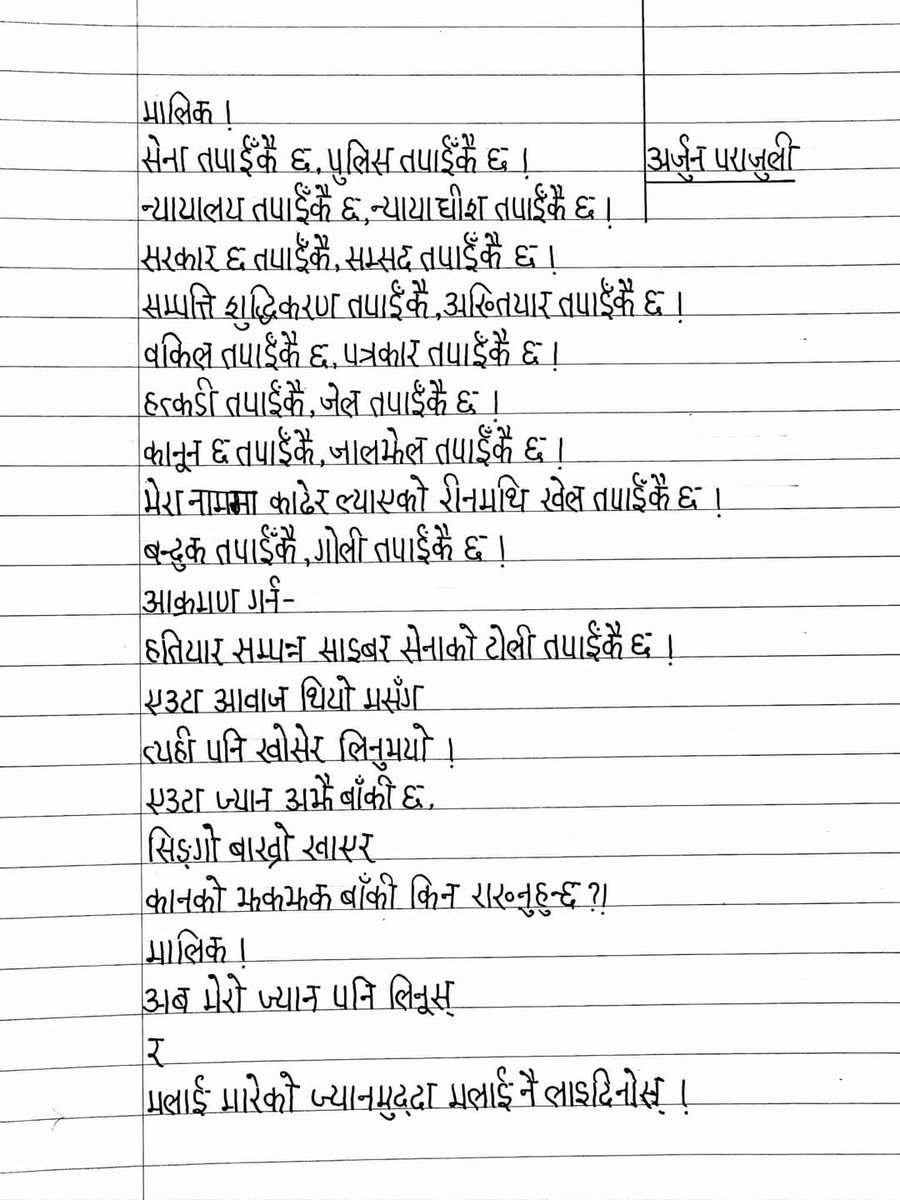 मालिक !
सेना तपाईँकै छ, पुलिस तपाईँकै छ !
अर्जुन पराजुली
न्यायालय तपाईँकै छ, न्यायाधीश तपाईँकै छ !
सरकार छ तपाईँकै, सम्सद तपाईँकै छ !
सम्पत्ति शुद्धिकरण तपाईँकै, अख्तियार तपाईँकै छ !
वकिल तपाईँकै छ, पत्रकार तपाईँकै छ !
हत्कडी तपाईँकै, जेल तपाईँकै छ !
कानून छ तपाईँकै, जालझेल तपाईँकै छ !
मेरा नाममा काढेर ल्याएको रीनमथि खेल तपाईँकै छ !
बन्दुक तपाईँकै, गोली तपाईँकै छ !
आक्रमण गर्न-
हतियार सम्पन्न साइबर सेनाको टोली तपाईँकै छ !
एउटा आवाज थियो मसँग
त्यही पनि खोसेर लिनुभयो !
एउटा ज्यान अझै बाँकी छ,
सिङ्गो बाख्रो खाएर
कानको झकझक बाँकी किन राख्नुहुन्छ ?!
मालिक !
अब मेरो ज्यान पनि लिनूस्
र
मलाई मारेको ज्यानमुद्दा मलाई नै लाइदिनोस् !